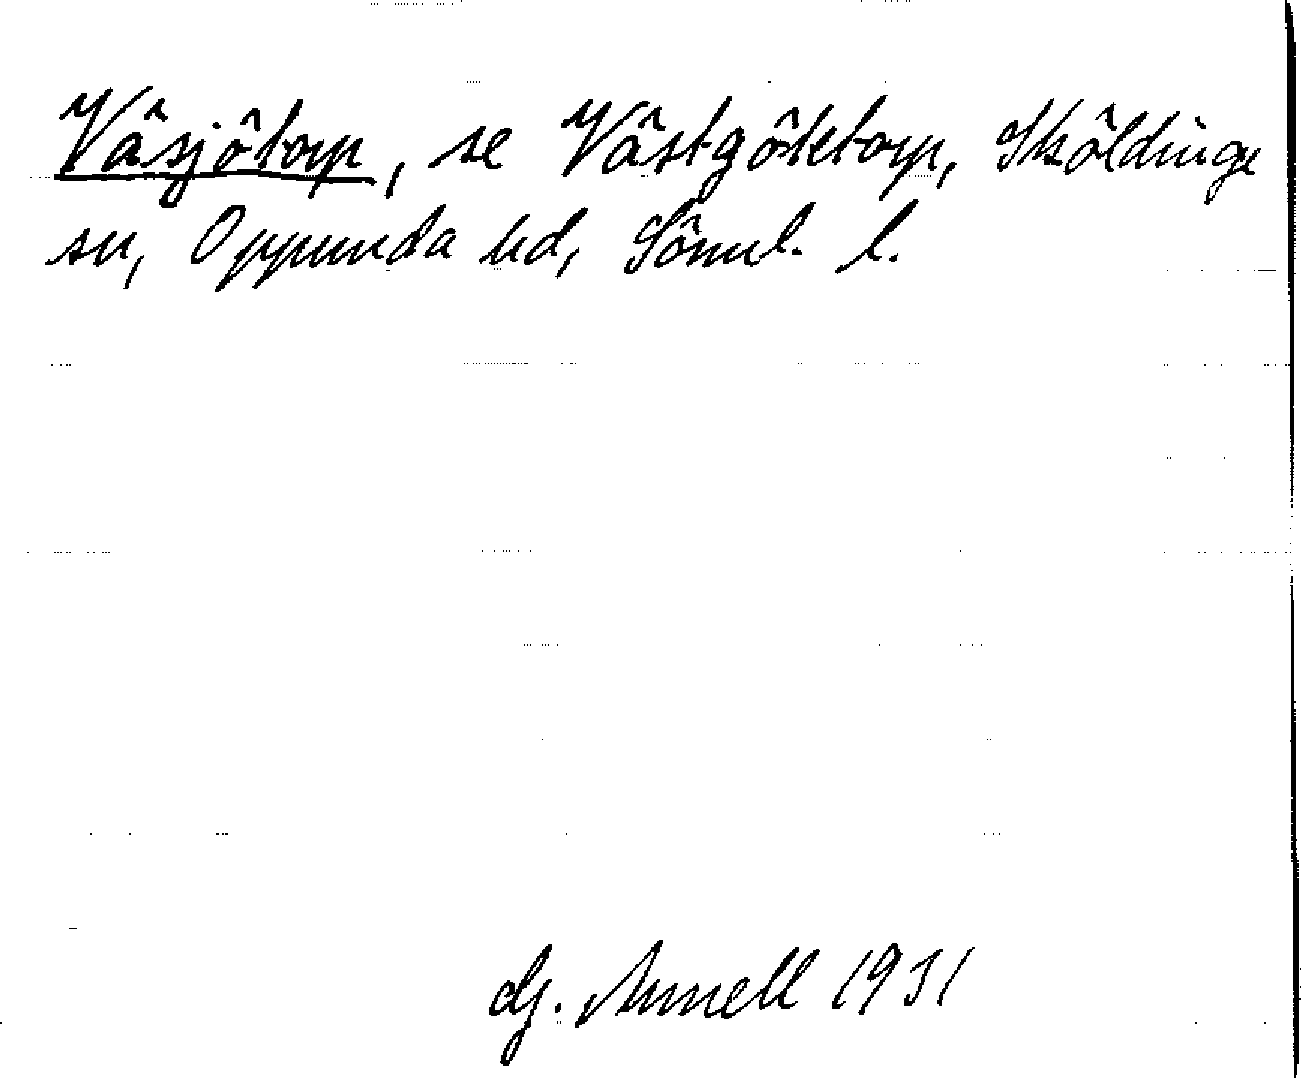 Väsjötorp, se Västgötetorp, Sköldinge
sn, Oppunda hd, Söml. l.
G. Annell 1931